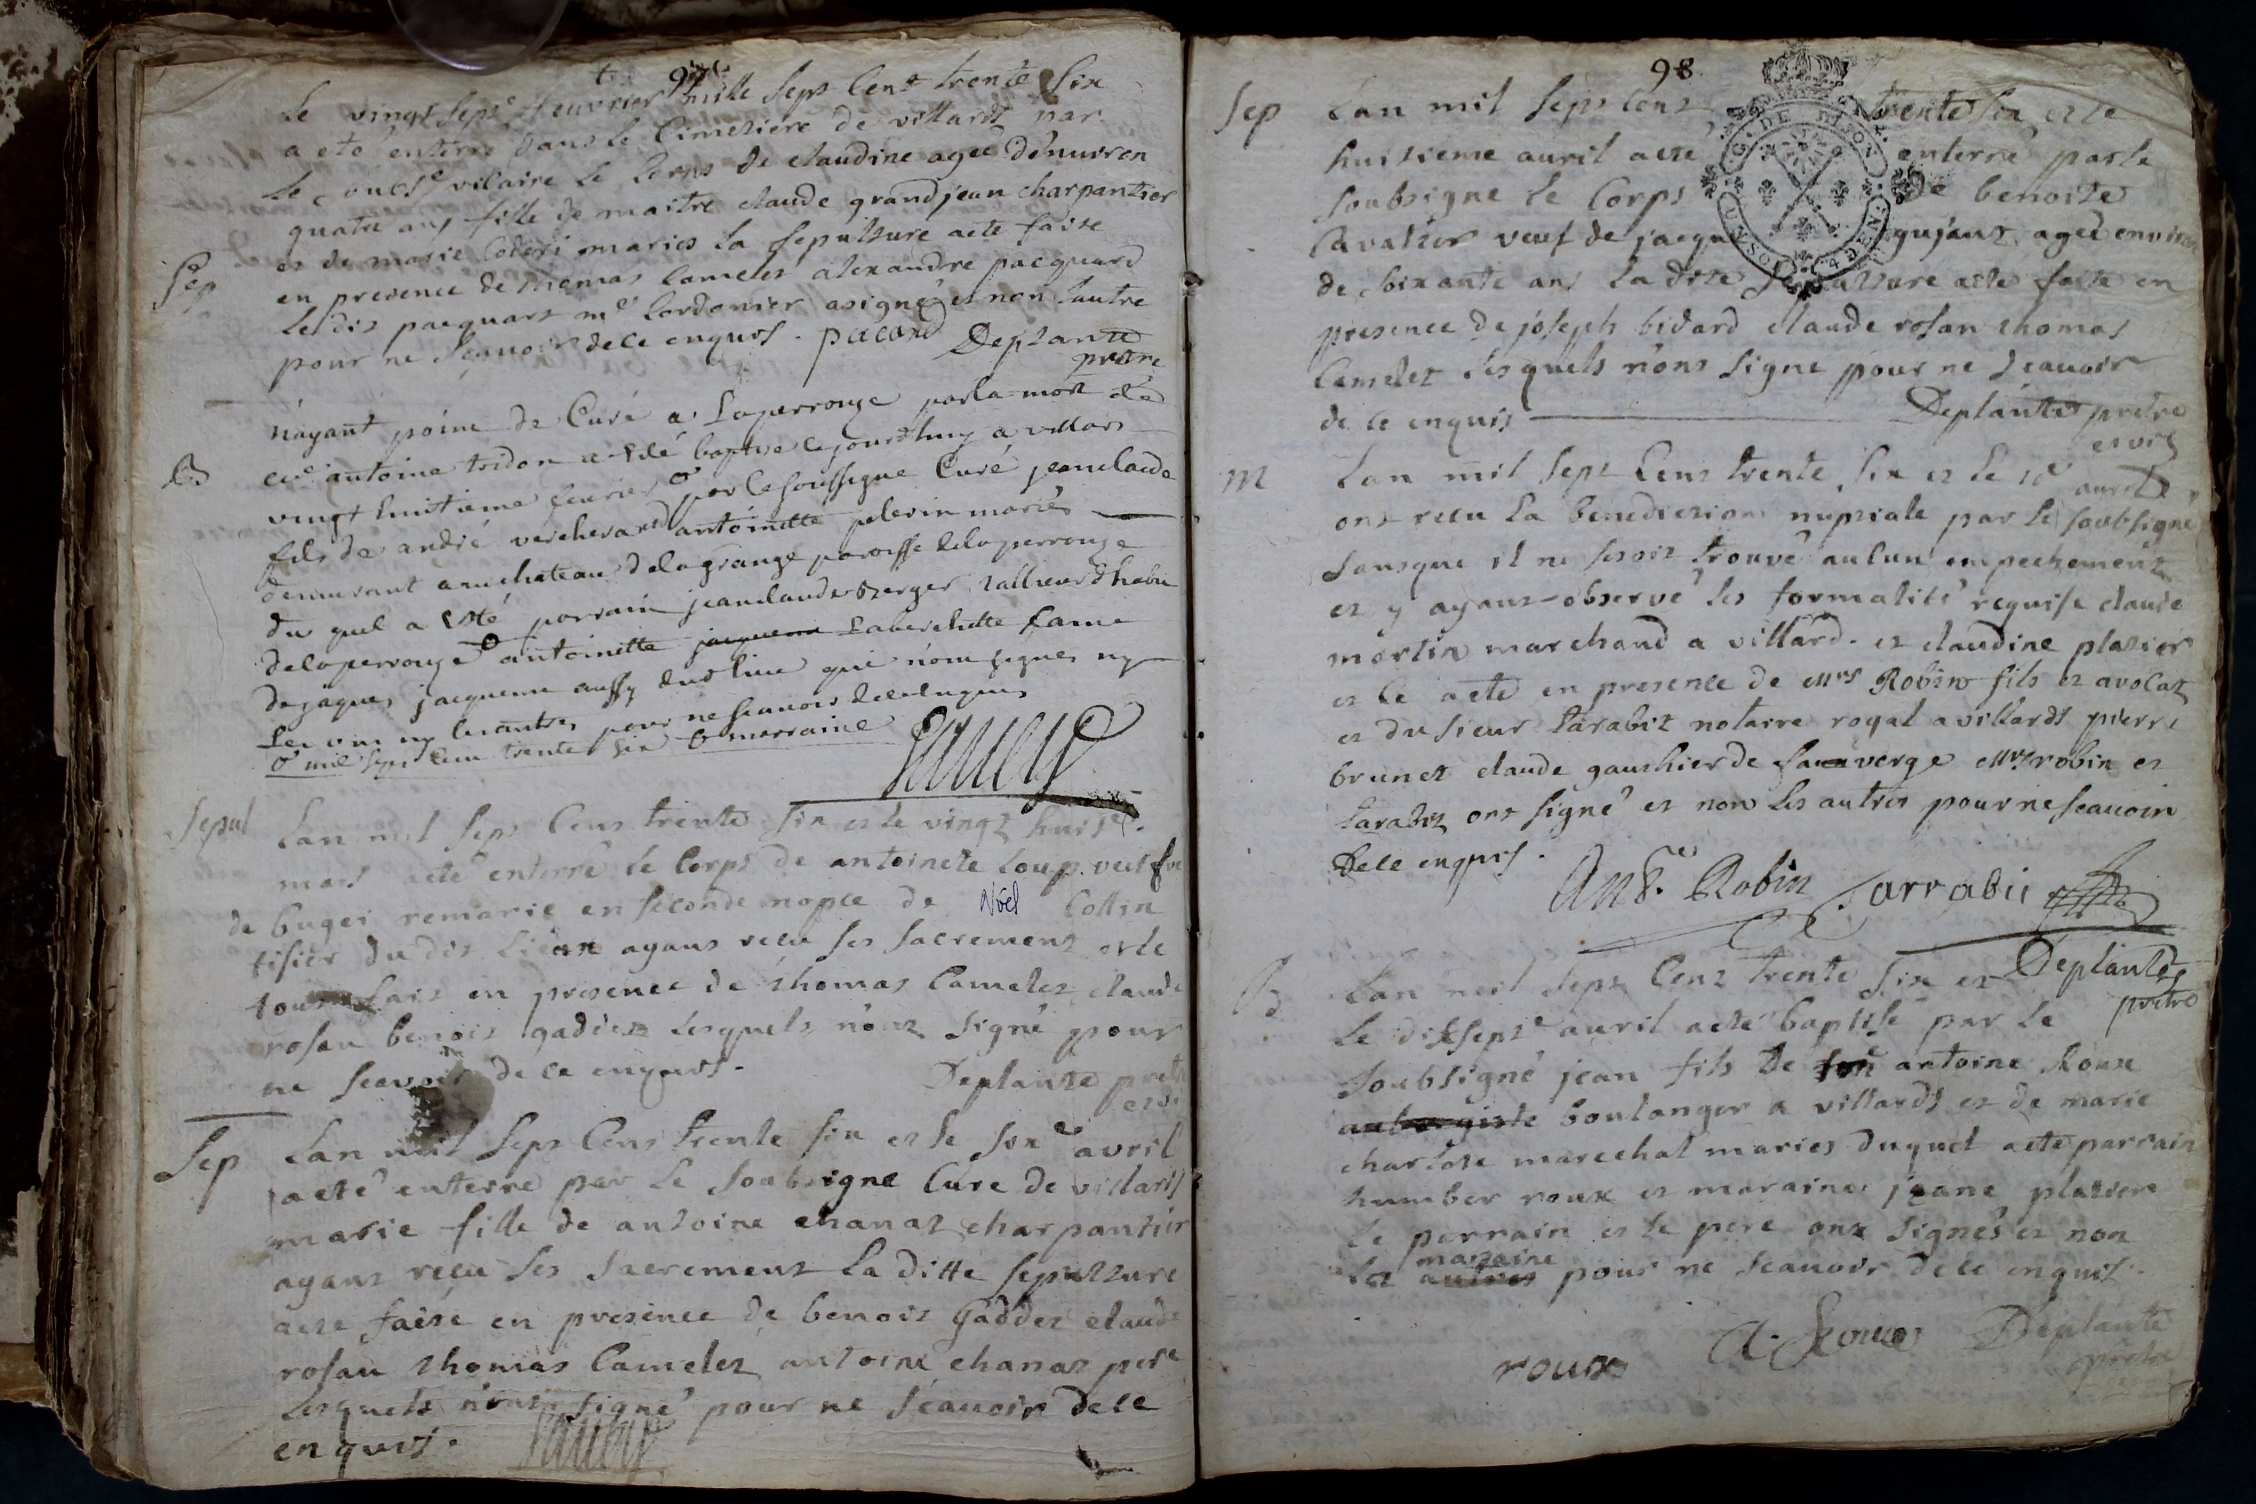 97
Le vingt sept feuvrier mille sept Cent trente six
a eté enterré dans le Cimetiere de villards par
le vicaire le Corps de claudine agée d'environ
quatre ans fille de maitre claude grandjean charpantier
et de marie maries la sepulture a eté faite
Sep
en presence de thomas Camelet alexandre pacquard
Le dit pacquart me Cordonier a signé et non l'autre
pour ne sçavoir de ce enquis. pacard Deplante
pretre
n'ayant point de Curé a Laperrouze par la mort de
B
antoine tridon a eté baptise le jourdhuy a villars
vingt huitieme feurier par le soussigne Curé jeanclaude
fils de andré vercherand antoinette pelerin mariés
demeurant au chateau de la grange paroisse de la perrouze
du quel a esté parrain jeanclaude berger tallieur dhabit
de la perrouze antoinette jacquema Laberchette fame
de jaques jacquema aussy dud lieu qui n'ont signes ny
Les uns ny les autres pour ne scauoir de ce enquis
mil sept cent trente six marraine
Sepul
Lan mil sept Cent trente six et le vingt huite
mars a eté enterré le Corps de antoinete loup veufve
de bugei remarie en seconde nopce de Noël Collin
tisier du dit Lieu ayant reçu ses sacrements et le
tout fait en presence de thomas Camelet claude
rosan benoit gaddet Lesquels n'ont signé pour
ne scavoir de ce enquis. Deplante pretre
et vic
Sep
Lan mil sept Cent trente six et le sixe avril
a eté enterré par le soubsigne Curé de villards
marie fille de antoine chanat charpantier
ayant reçu ses sacrement La ditte sepulture
a eté faite en presence de benoit gaddet claude
rosan thomas Camelet antoine chanat pere
Lesquels n'ont signé pour ne scauoir de ce
enquis.
98
Sep
Lan mil sept Cent trente six et le
huitieme auril a eté enterré par le
soubsigne le Corps de benoite
Cavalier veuf de jacque gujant agée environ
de soixante ans La dite Sepulture a eté faite en
presence de joseph bidard claude rosan thomas
Camelet Lesquels n'ont signe pour ne scauoir
de ce enquis Deplante pretre
et vic
M
Lan mil sept Cent trente six et le 10e auril
ont reçu La benediction nuptiale par le soubsigne
sans que il ne se soit trouvé aucun empechement
et y ayant observé les formalité requise claude
martin marchand a villard. et claudine platier
et ce a eté en presence de Mrs Robin fils et avocat
et du sieur tarabit notaire royal a villards pierre
brunet claude gauthier de sauverge Mrs robin et
tarabit ont signé et non les autres pour ne scauoir
de ce enquis.
Ant. Robin Sarrabit
Deplante
pretre
B
Lan mil sept Cent trente six et
le dixsepte auril a eté baptisé par le
soubsigné jean fils de antoine Roux
aubergiste boulanger a villards et de marie
charlote marechal maries duquel a eté parrain
humber roux et maraine jeane platiere
Le parrain et le pere ont signés et non
La autres maraine pour ne scauoir de ce enquis.
roux A. Roux Deplante
pretre
G. DE DIJON